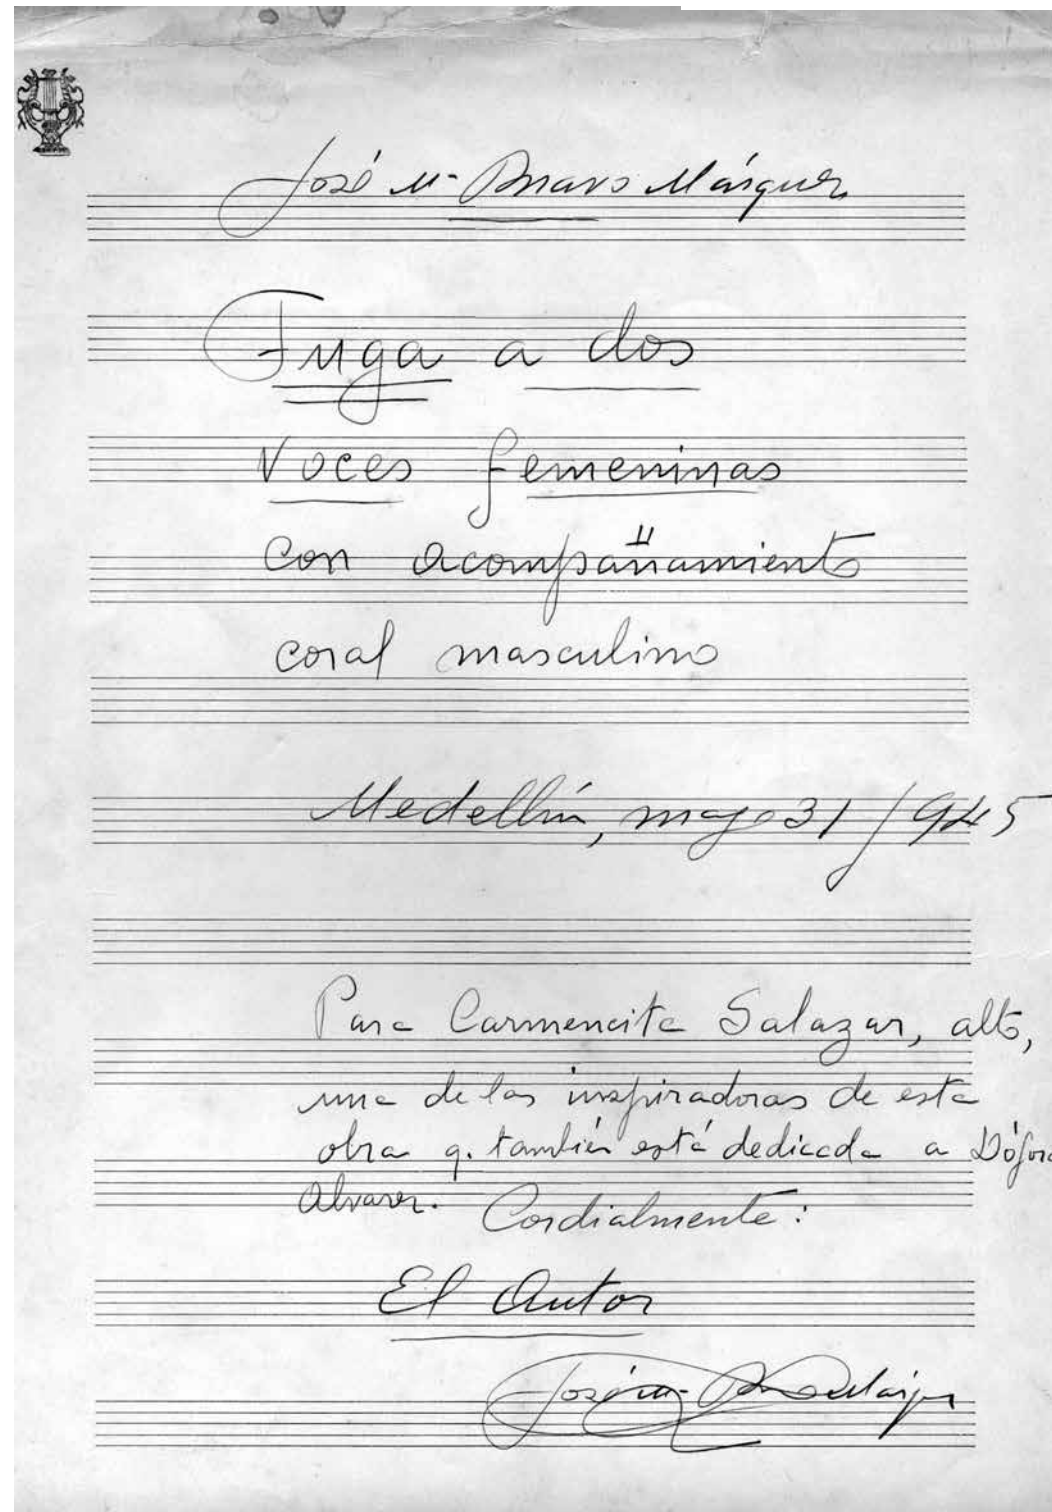 José Mª Bravo Márquez
Fuga a dos
voces femeninas
con acompañamiento
coral masculino
Medellín, mayo 31/945
Para Carmencita Salazar, alto,
una de las inspiradoras de esta
obra q. también está dedicada a
Alvarez. Cordialmente:
El Autor
José Mª Bravo Márquez